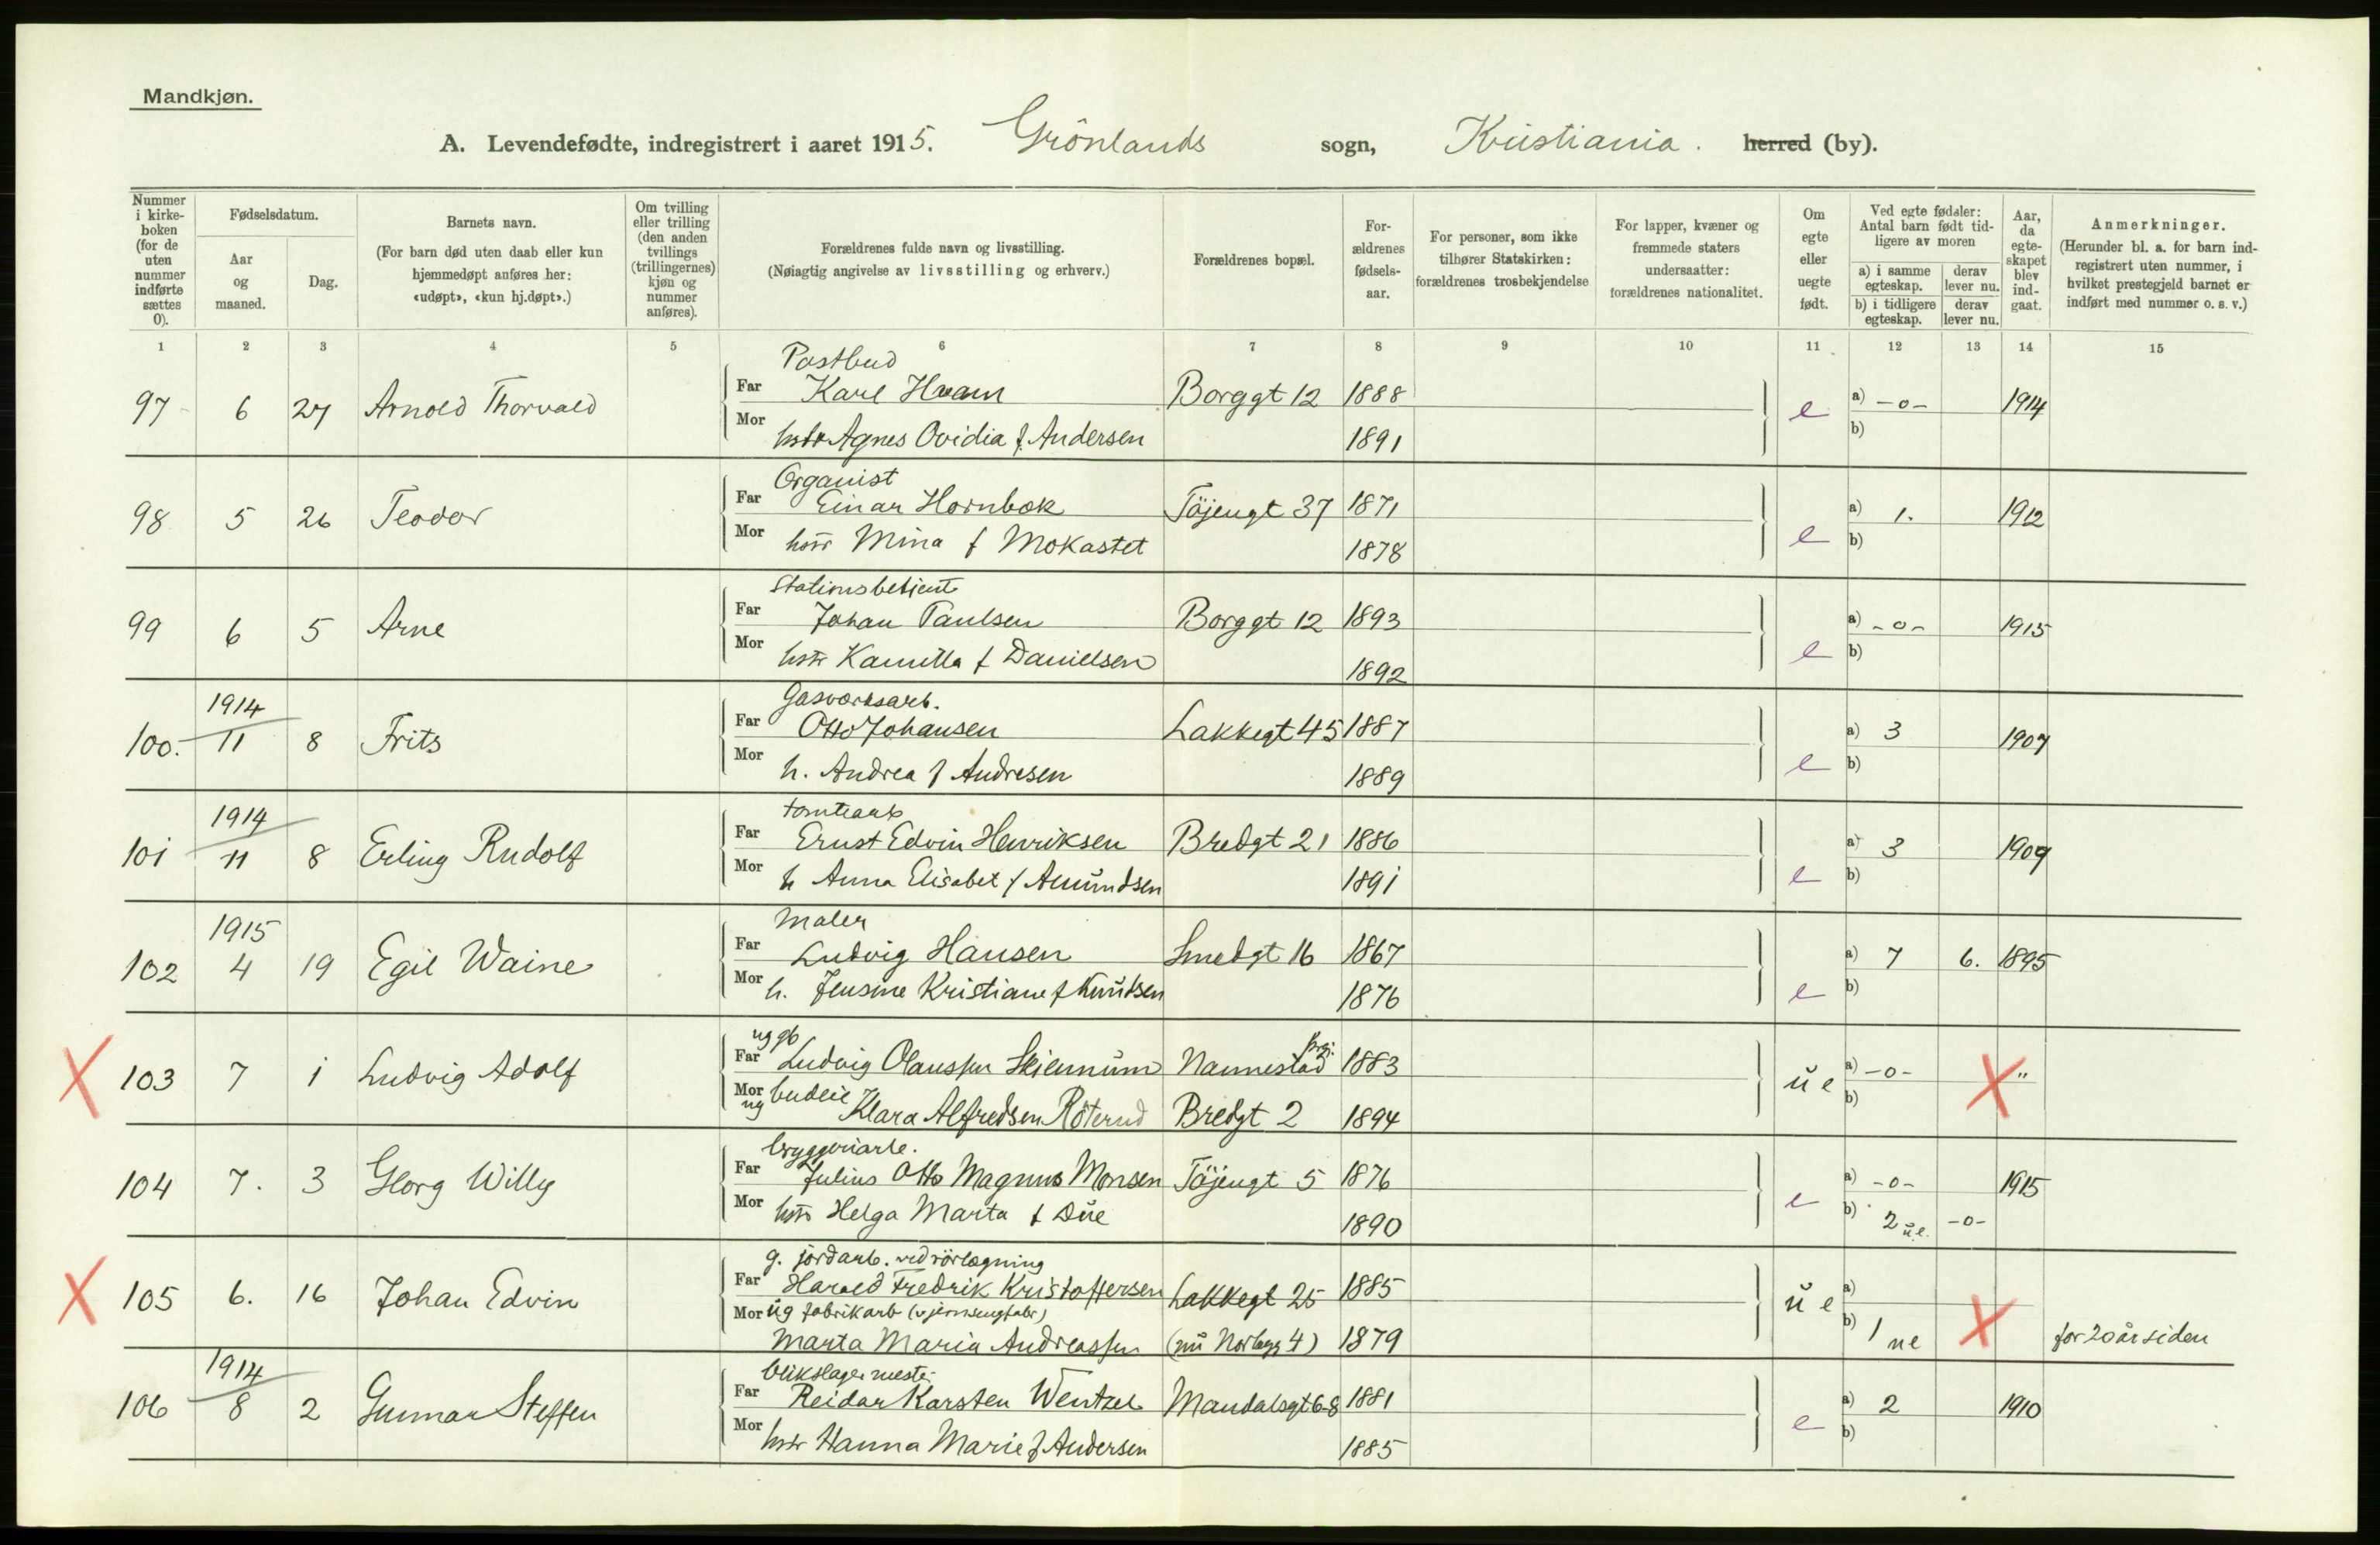 Mandkjøn.
A. Levendefødte, indregistrert i aaret 1915. Grönlands sogn, Kristiania. herred (by).
Nummer i kirke-boken (for de uten nummer indførte sættes 0).
Fødselsdatum.
Aar og maaned.
Dag.
Barnets navn.
(For barn død uten daab eller kun hjemmedøpt anføres her: «udøpt», «kun hj.døpt».)
Om tvilling eller trilling (den anden tvillings (trillingernes) kjøn og nummer anføres).
Forældrenes fulde navn og livsstilling.
(Nøiagtig angivelse av livsstilling og erhverv.)
Forældrenes bopæl.
For-ældrenes fødsels-aar.
For personer, som ikke tilhører Statskirken: forældrenes trosbekjendelse
For lapper, kvæner og fremmede staters undersaatter: forældrenes nationalitet.
Om egte eller uegte født.
Ved egte fødsler: Antal barn født tid-ligere av moren
a) i samme egteskap.
derav lever nu.
b) i tidligere egteskap.
derav lever nu.
Aar, da egte-skapet blev ind-gaat.
Anmerkninger.
(Herunder bl. a. for barn ind-registrert uten nummer, i hvilket prestegjeld barnet er indført med nummer o. s. v.)
1 2 3 4 5 6 7 8 9 10 11 12 13 14 15
Postbud
97 6 27 Arnold Thorvald Far Karl Hvam Borggt 12 1888 e a) -o- 1914
Mor hstr Agnes Ovidia f. Andersen 1891 b)
Organist
98 5 26 Teodor Far Einar Hornbek Töjengt 37 1871 e a) 1. 1912
Mor hstr Mina f Mokastet 1878 b)
Stationsbetjent
99 6 5 Arne Far Johan Paulsen Borggt 12 1893 e a) -o- 1915
Mor hstr Kamilla f Danielsen 1892 b)
1914 Gasværksarb.
100. 11 8 Frits Far Otto Johansen Lakkegt 45 1887 e a) 3 1907
Mor h. Andrea f Andresen 1889 b)
1914 tomtearb
101 11 8 Erling Rudolf Far Ernst Edvin Henriksen Bredgt 21 1886 e a) 3 1909
Mor h Anna Elisabet f Amundsen 1891 b)
1915 Maler
102 4 19 Egil Waine Far Ludvig Hansen Smedgt 16 1867 e a) 7 6. 1895
Mor h. Jensine Kristiane f Knudsen 1876 b)
ug gb
X 103 7 1 Ludvig Adolf Far Ludvig Olaussen Skiennum Nannestad prgj. 1883 u e a) -o- X "
Mor ug budeie Klara Alfredsen Röterud Bredgt 2 1894 b)
bryggeriarb.
104 7. 3 Georg Willy Far Julius Otto Magnus Monsen Töjengt 5 1876 e a) -o- 1915
Mor hstr Helga Marta f Due 1890 b) 2 u.e. -o-
g. jordarb. ved rörlægning
X 105 6. 16 Johan Edvin Far Harald Fredrik Kristoffersen Lakkegt 25 1885 u e a)
Mor ug fabrikarb (v jernsengfabr)
Marta Maria Andreassen (nu Norbygt 4) 1879 b) 1 ue X for 20 år siden
1914 blikslagermester
106 8 2 Gunnar Steffen Far Reidar Karsten Wentzel Mandalsgt 6-8 1881 e a) 2 1910
Mor hstr Hanna Marie f Andersen 1885 b)